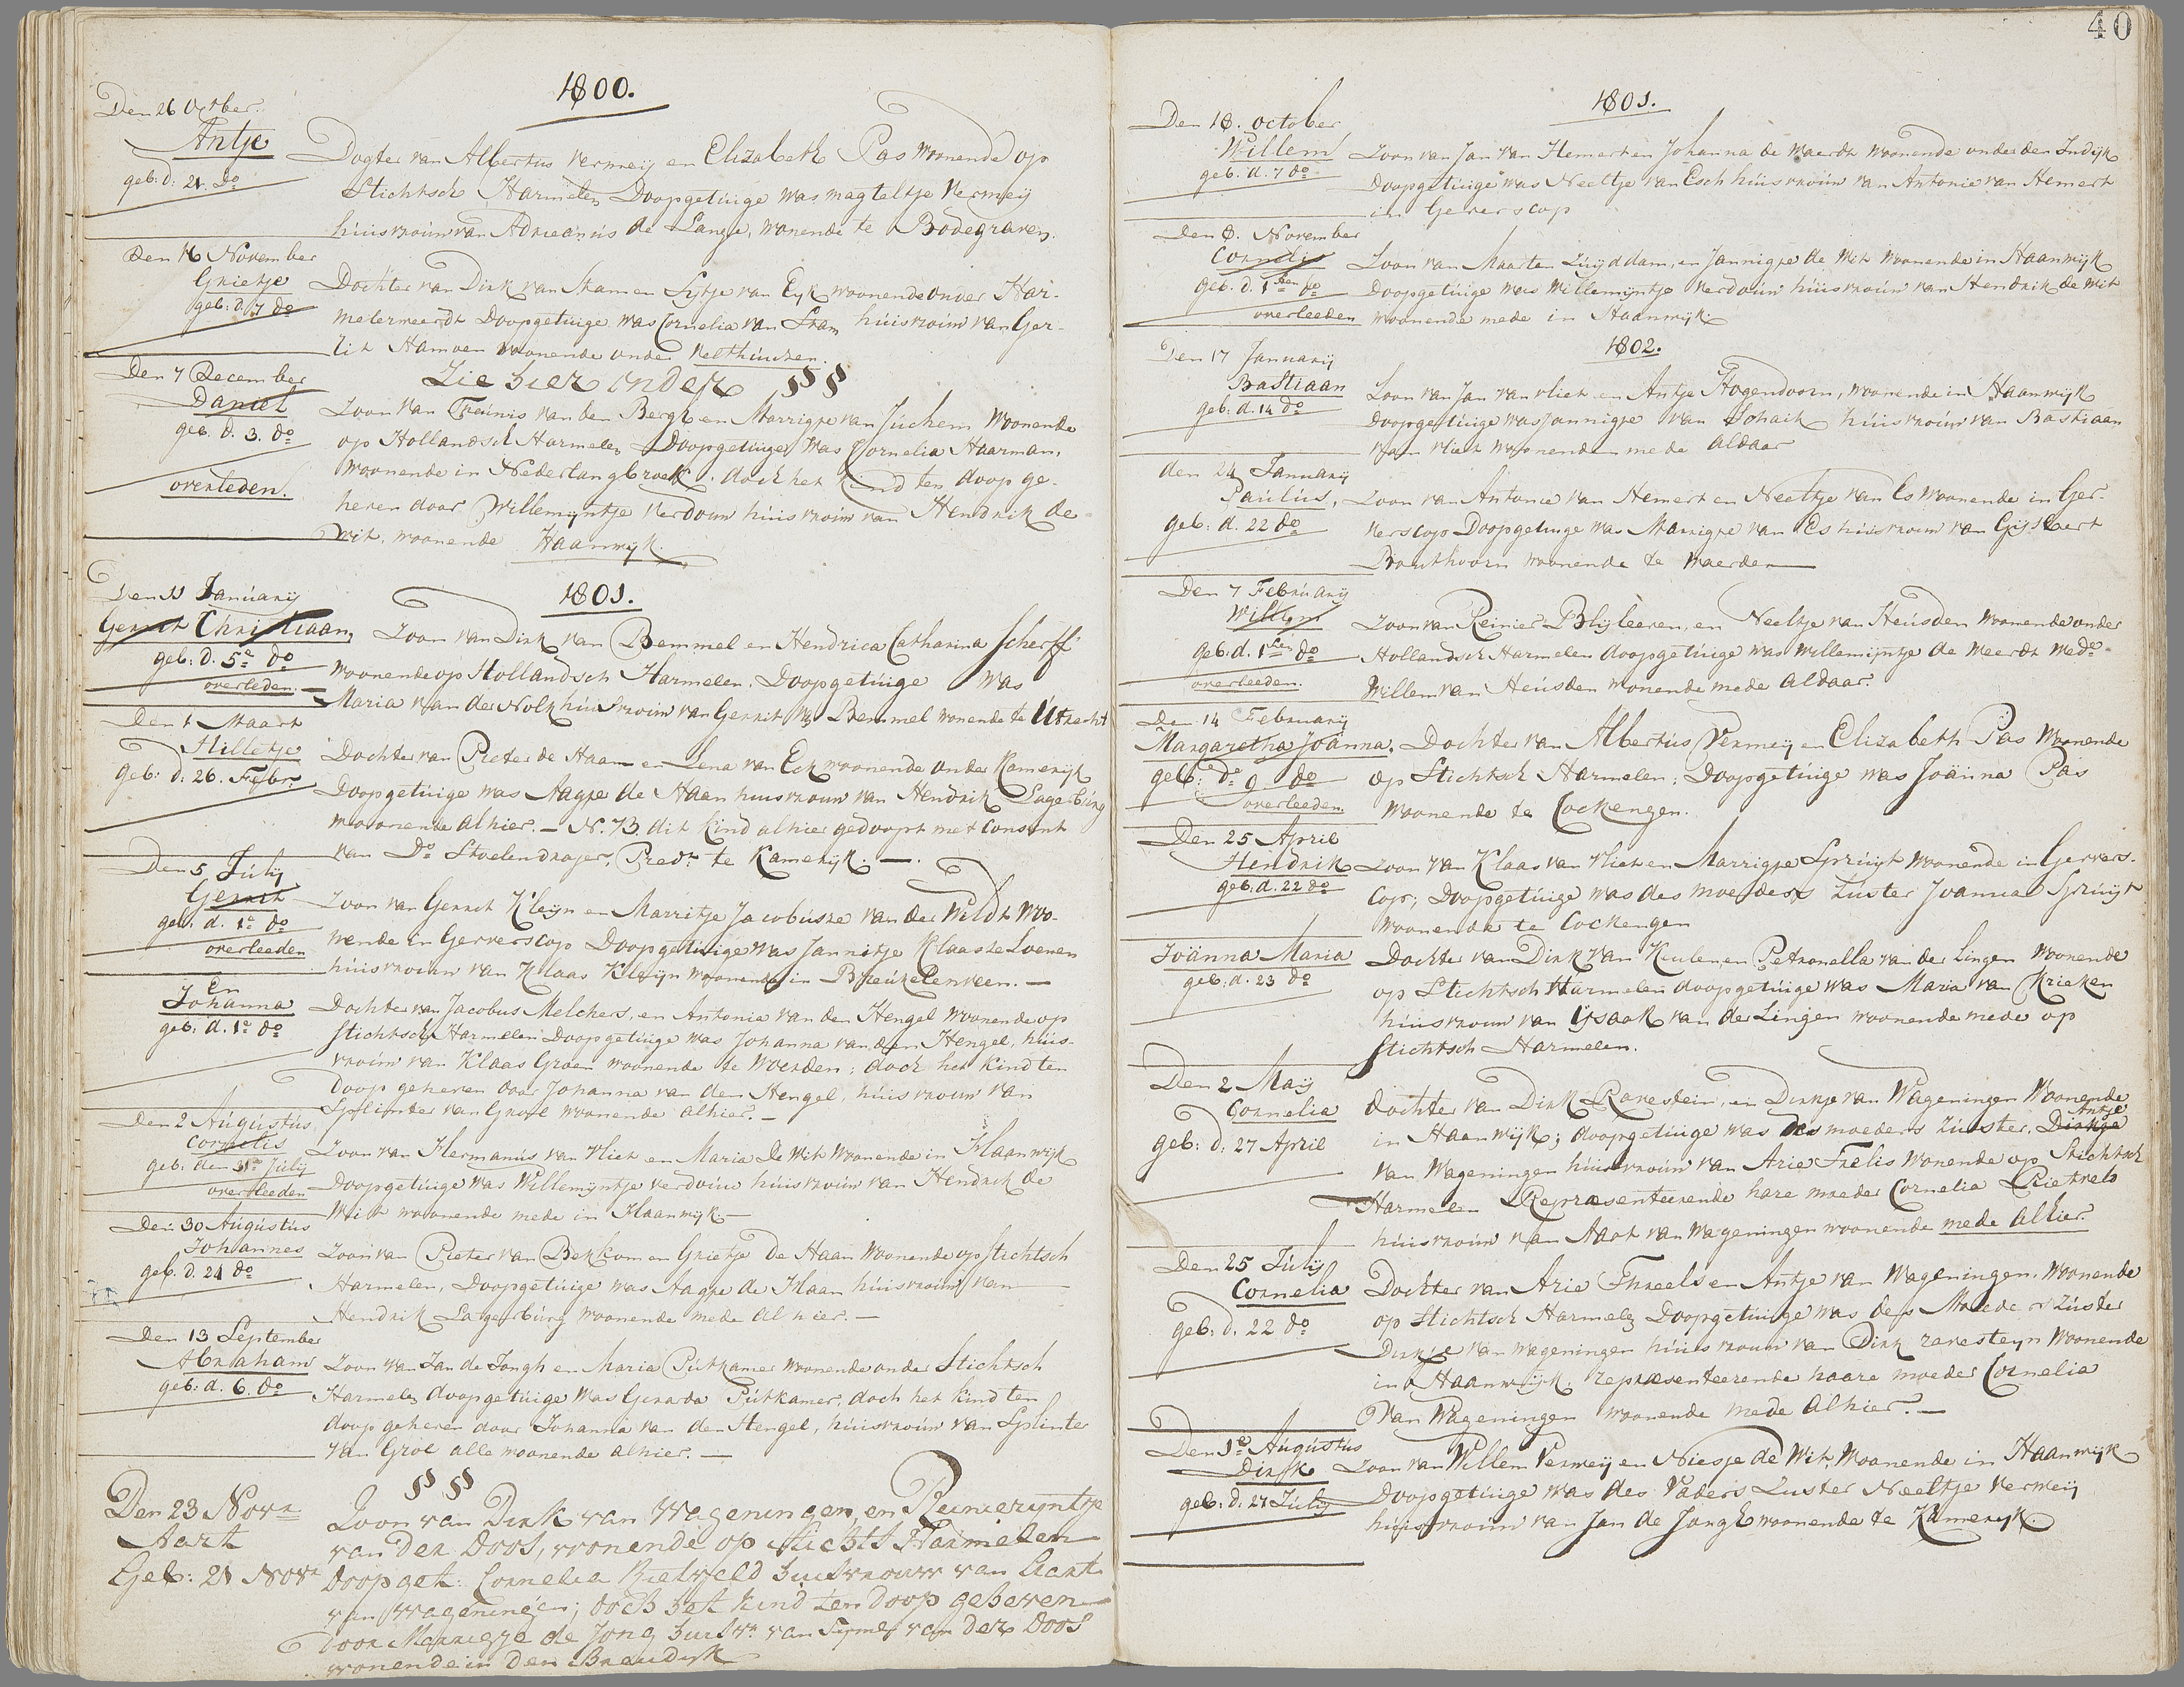 1800.
Den 26 October.
Antje
geb: d: 21. do
Dogter van Albertus Vermeij en Elizabeth Pas woonende op
Stichtsch Harmelen Doopgetuige was magteltje Vermeij
huisvrouw van Adrieanus de Lange, wonende te Bodegraven.
Den 16 November
Grietje
geb: d: 7 do
Dochter van Dirk van Stam en Sijtje van Eyk woonende onder Har-
melerweerdt Doopgetuige was Cornelia van Stam huisvrouw van Ger-
rit Hamoen woonende onder Velthuisen.
Zie hier onder §§
Den 7 December
Daniel
geb. d. 3. do
overleden.
Zoon van Theunis van den Bergh en Marrigje van Juchem woonende
op Hollandsch Harmelen Doopgetuige was Cornelia Haarman,
woonende in Nederlangbroek. doch het kind ten doop ge-
heven door Willemijntje Verdouw huisvrouw van Hendrik de
Wit. woonende Haanwijk.
1801.
Den 11 Januarij
Gerrit Christiaan,
geb: d. 5e do
overleden.
Zoon van Dirk van Bemmel en Hendrica Catharina Scherff
woonende op Hollandsch Harmelen. Doopgetuige was
Maria van der Nolk huisvrouw van Gerrit v Bemmel wonende te Utrecht
Den 1 Maart
Hilletje
Geb: d: 26. Febr.
Dochter van Pieter de Haan en Lena van Eck woonende onder Kamerijk
Doopgetuige was Aagje de Haan huisvrouw van Hendrik Lagerburg
woonende alhier. — N. 73. dit kind alhier gedoopt met Consent
van Do Stoelendrajer, Predt. te Kamerijk. —.
Den 5 Julij
Gerrit
geb. d. 1e do
overleeden
Zoon van Gerrit Kleijn en Marritje Jacobusse van der Wildt woo-
nende in Gerverscop Doopgetuige was Jannitje Klaasse Loenen
huisvrouw van Klaas Kleijn woonende in Breukelenveen. —
En
Johanna
geb. d. 1e do
Dochter van Jacobus Melchers, en Antonia van den Hengel woonende op
Stichtsch Harmelen Doopgetuige was Johanna van den Hengel, huis-
vrouw van Klaas Groen woonende te Woerden; doch het kind ten
Doop geheven door Johanna van den Hengel, huisvrouw van
Splinter van Groll woonende alhier. —
Den 2 Augustus
Cornelis
geb. den 31e Julij
overleeden
Zoon van Hermanus van Vliet en Maria de Wit woonende in Haanwijk
Doopgetuige was Willemijntje verdouw huisvrouw van Hendrik de
Wit woonende mede in Haanwijk —
Den 30 Augustus
Johannes
geb. d. 24 do
Zoon van Pieter van Bekkom en Grietje De Haan Woonende op Stichtsch
Harmelen, Doopgetuige was Aagje de Haan huisvrouw van
Hendrik Lagerburg woonende mede Alhier. —
Den 13 September
Abraham
geb: d. 6. do
Zoon van Jan de Jongh en Maria Putkamer woonende onder Stichtsch
Harmelen doopgetuige was Gerarda Putkamer. doch het kind ten
doop geheven door Johanna van den Hengel, huisvrouw van Splinter
van Grol alle woonende alhier. —
§ §
Den 23 Novr
Aart
Geb: 21 Novr
Zoon van Dirk van Wagening en, en Reimerijntje
van der Doos, wonende op sticht Harmelen
doopget: Cornelia Rietveld huisvrouw van Aart
van Wageningen; doch het kind ten doop geheven
door Marrigje de Jong huisvr. van Sijmes van der Doos
wonende in den Breudijk
40
1801.
Den 18. october
Willem
geb. d. 7 do
Zoon van Jan van Hemert en Johanna de Waerdt woonende onder den Indijk
Doopgetuige was Neeltje van Esch huisvrouw van Antonie van Hemert
in Gerverscop
Den 8. November
Cornelis
Geb. d. 1ten do
overleeden
Zoon van Maarten Zuijddam, en Jannigje de Wit woonende in Haanwijk
Doopgetuige was Willemijntje Verdouw huisvrouw van Hendrik de Wit
woonende mede in Haanwijk
1802.
Den 17 Januarij
Bastiaan
geb: d. 14 do
Zoon van Jan van vliet en Antje Hogendoorn, woonende in Haanwijk
Doopgetuige was Jannigje van Schaik huisvrouw van Bastiaan
van vliet woonende mede aldaar
den 24 Januarij
Paulus,
geb: d. 22 do
Zoon van Antonie van Hemert en Neeltje van Es woonende in Ger-
verscop Doopgetuige was Marrigje van Es huisvrouw van Gijsbert
Bouthoorn woonende te Waerden
Den 7 Februarij
Willem
geb: d. 1ten do
overleeden.
Zoon van Reinier Blijleeven, en Neeltje van Heusden woonende onder
Hollandsch Harmelen doopgetuige was Willemijntje de Weerdt Wede.
Willem van Heusden wonende mede Aldaar.
Den 14 Februarij
Margaretha Joänna.
geb: de 9 do
overleeden.
Dochter van Albertus Vermeij en Elizabeth Pas woonende
op Stichtsch Harmelen; Doopgetuige was Joänna Pas
woonende te Cockengen.
Den 25 April
Hendrik
geb. d. 22 do
Zoon van Klaas van Vliet en Marrigje Spruijt woonende in Gervers-
cop; Doopgetuige was des moeders Zuster Joanna Spruijt
woonende te Cockengen
Joänna Maria
geb: d. 23 do
Dochter van Dirk van Keulen, en Petronella van der Lingen woonende
op Stichtsch Harmelen doopgetuige was Maria van Krieken
huisvrouw van Ysaak van der Lingen woonende mede op
Stichtsch Harmelen.
Den 2 Maij
Cornelia
geb: d: 27 April
dochter van Dirk Ravestein, en Dirkje van Wageningen Woonende
in Haanwijk; doopgetuige was des moeders Zuster, Dirkje Antje
van Wageningen huisvrouw van Arie Frelis wonende op Stichtsch
Harmelen Repraesenteerende hare moeder Cornelia Rietvelt
huisvrouw van Aart van Wageningen woonende mede alhier.
Den 25 Julij
Cornelia
geb: d. 22 do
Dochter van Arie Threels en Antje van Wageningen. woonende
op Stichtsch Harmelen Doopgetuige was des Moeders Zuster
Dirkje van Wageningen huisvrouw van Dirk ravesteyn woonende
in Haanwijk. repraesenteerende haare moeder Cornelia
van Wageningen woonende mede Alhier. —
Den 1e Augustus
Dirk
geb: d: 27 Julij
Zoon van Willem Vermeij en Niesje de Wit, Woonende in Haanwijk
Doopgetuige was des Vaders Zuster Neeltje Vermeij
huisvrouw van Jan de Jongh woonende te Kamerijk.